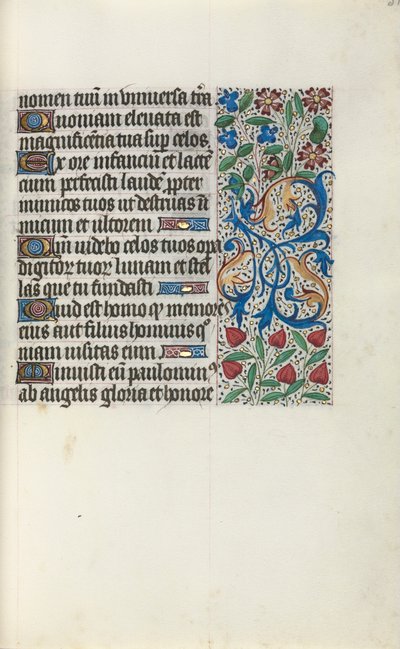 nomen tuū in vniuersa tr̄a
Quoniam eleuata est
magnificētia tua sup celos.
Ex ore infanciū et lactē
cium perfecisti laudē ꝓpter
inimicos tuos ut destruas īi
micum et ultorem
Qm̄ uidebo celos tuos opa
digitoꝝ tuoꝝ lunam et stel
las que tu fundasti
Quid est homo ꝙ memores
eius aut filius hominis qo
niam uisitas eum
Minuisti eū paulominꝰ
ab angelis gloria et honore